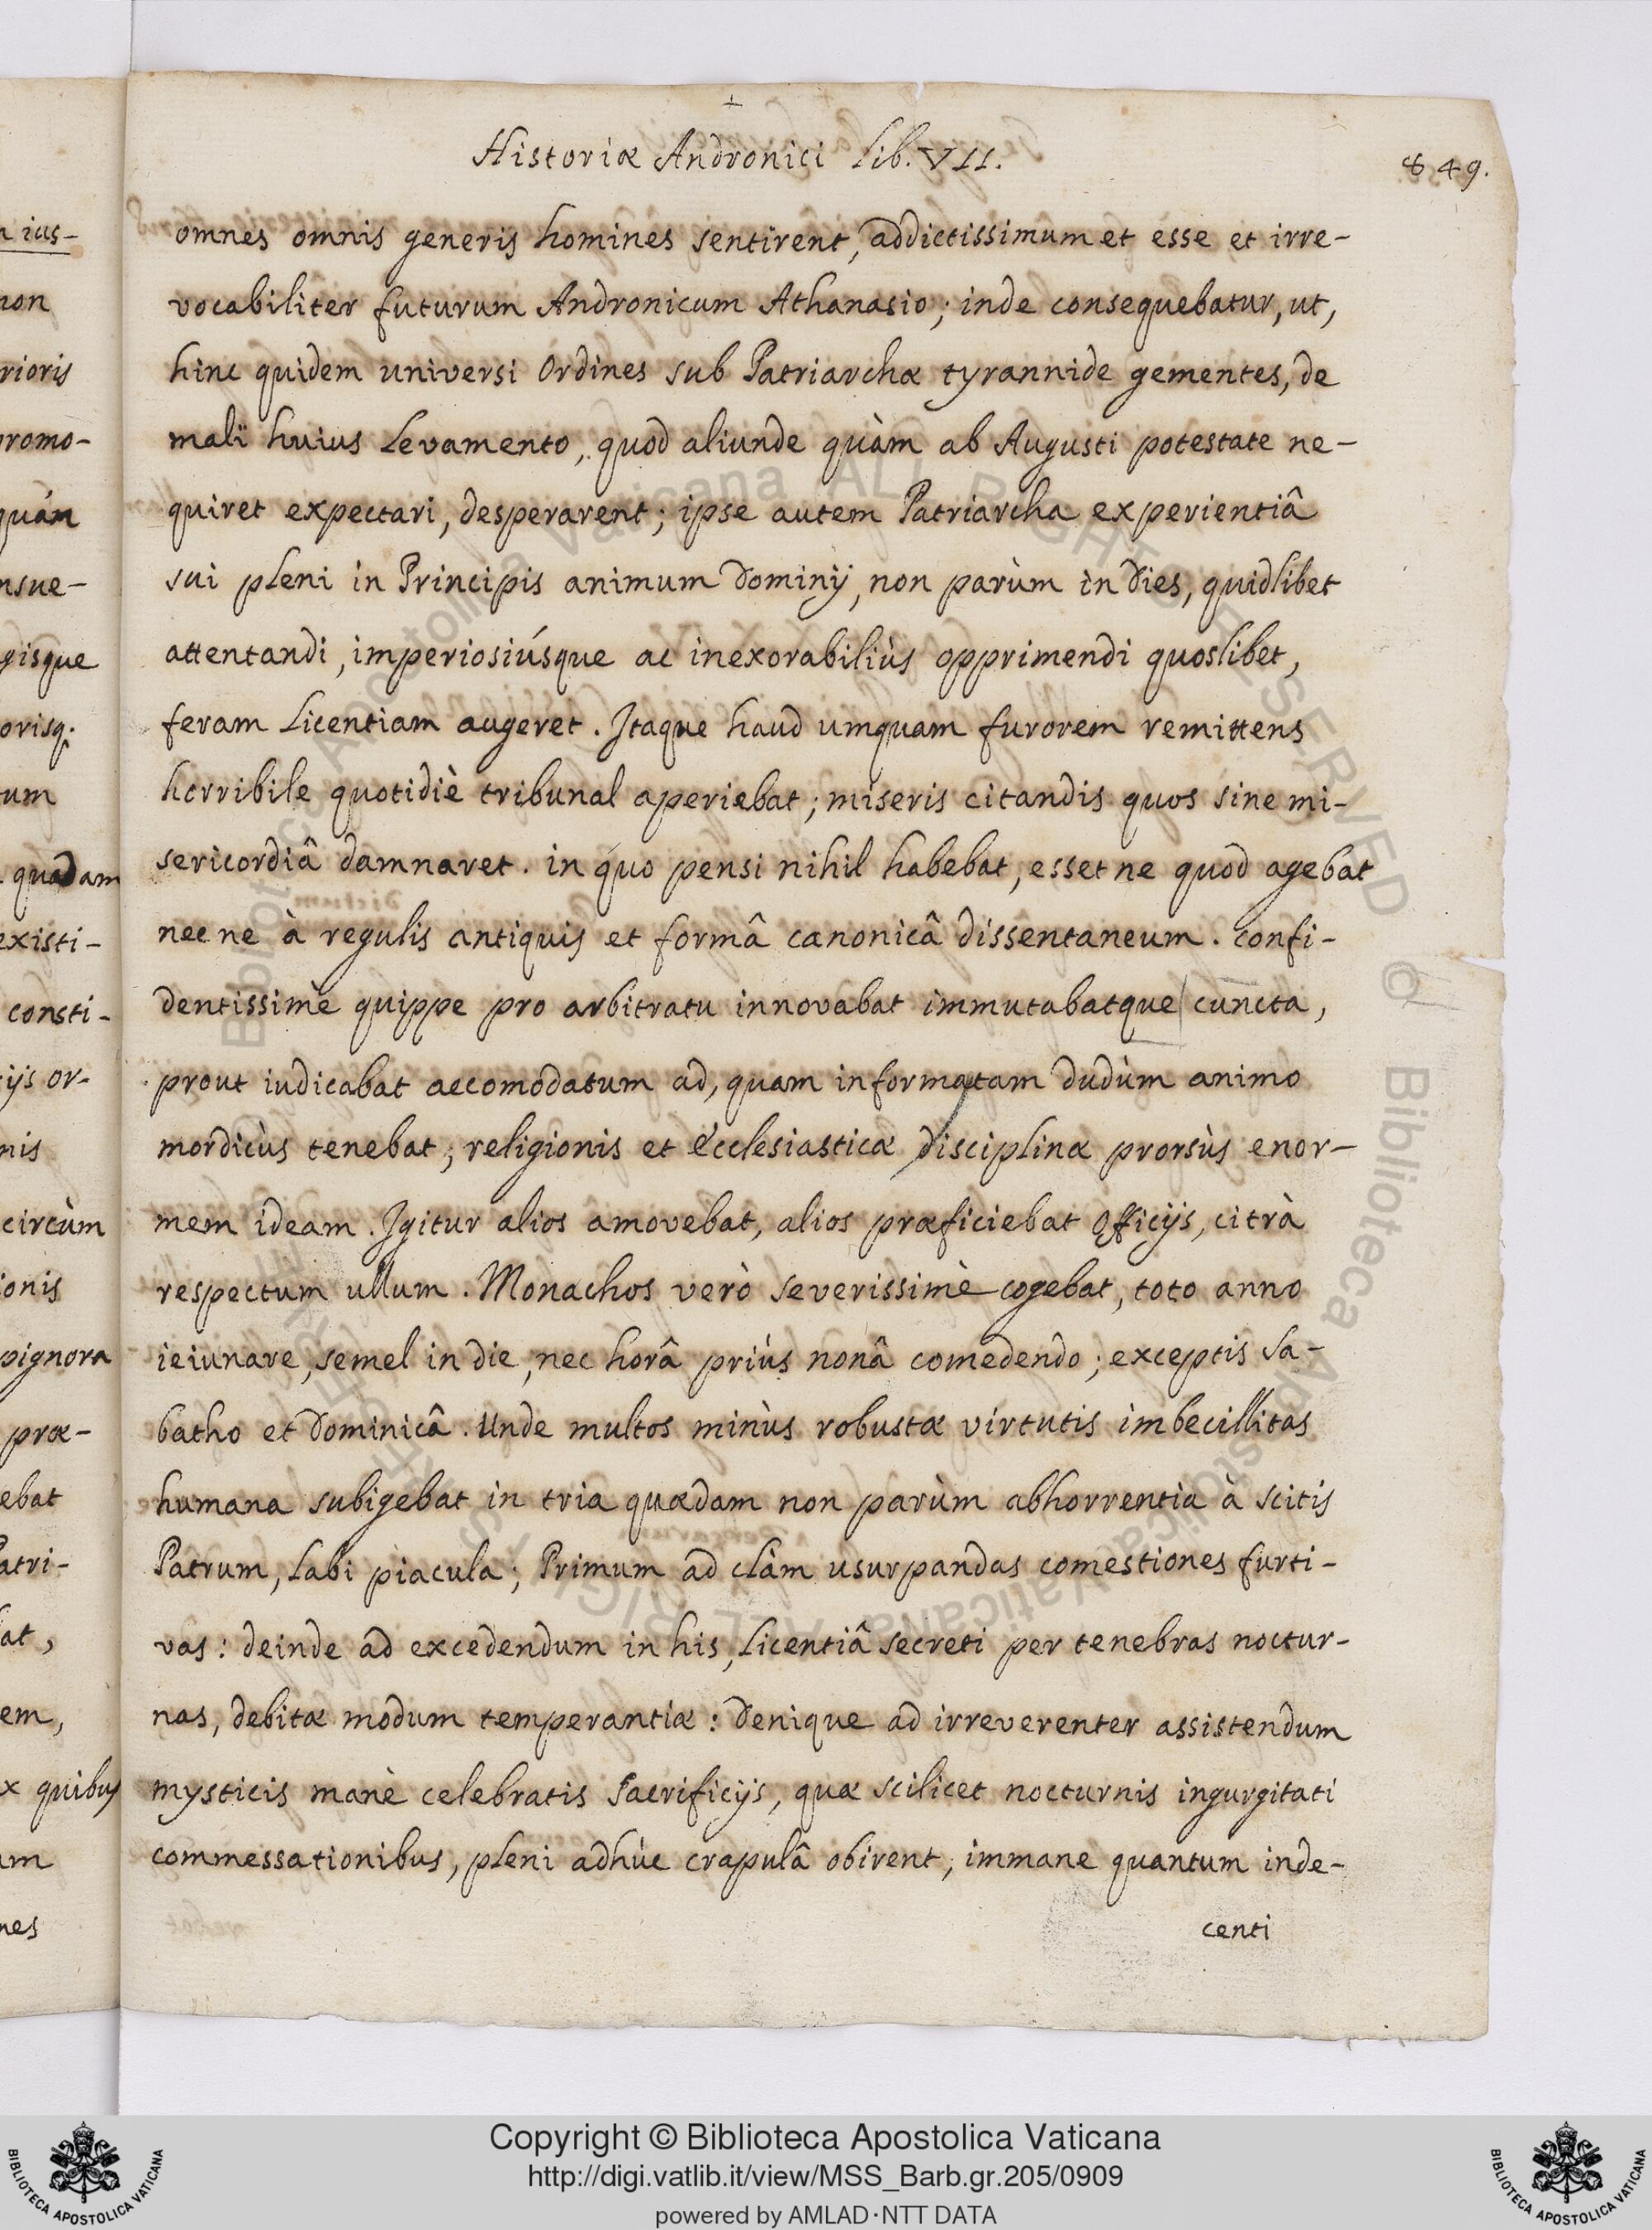 Historiæ Andronici Lib. VII.
849.
omnes omnis generis homines sentirent, addictissimum et esse et irre-
vocabiliter futurum Andronicum Athanasio; inde consequebatur, ut,
hinc quidem universi Ordines sub Patriarchæ tyrannide gementes, de
mali huius Levamento, quod aliunde quàm ab Augusti potestate ne-
quiret expectari, desperarent; ipse autem Patriarcha experientiâ
sui pleni in Principis animum Dominij, non parùm in dies, quidlibet
attentandi, imperiosiúsque ac inexorabiliùs opprimendi quoslibet,
feram Licentiam augeret. Itaque haud umquam furorem remittens
horribile quotidiè tribunal aperiebat; miseris citandis quos sine mi-
sericordiâ damnaret. in quo pensi nihil habebat, esset ne quod agebat
nec ne à regulis antiquis et formâ canonicâ dissentaneum. confi-
dentissimè quippe pro arbitratu innovabat immutabatque cuncta,
prout iudicabat accomodatum ad, quam informatam dudùm animo
mordicùs tenebat, religionis et Ecclesiasticæ disciplinæ prorsùs enor-
mem ideam. Igitur alios amovebat, alios præficiebat Officijs, citrà
respectum ullum. Monachos verò severissimè cogebat, toto anno
ieiunare, semel in die, nec horâ priùs nonâ comedendo; exceptis Sa-
batho et Dominicâ. Unde multos minùs robustæ virtutis imbecillitas
humana subigebat in tria quædam non parùm abhorrentia à scitis
Patrum, Labi piacula; Primum ad clàm usurpandas comestiones furti-
vas: deinde ad excedendum in his, Licentiâ secreti per tenebras noctur-
nas, debitæ modum temperantiæ: Denique ad irreverenter assistendum
mysticis manè celebratis Sacrificijs, quæ scilicet nocturnis ingurgitati
commessationibus, pleni adhùc crapulâ obirent, immane quantum inde-
centi
ius-
non
rioris
promo-
quám
nsue-
gisque
orisq;
um
quadam
existi-
consti-
ijs or-
nis
circùm
ionis
pignora
præ-
ebat
Patri-
at,
em,
x quibus
um
nes
Biblioteca Apostolica Vaticana ALL RIGHTS RESERVED © Biblioteca Apostolica Vaticana ALL RIGHTS RESERVED
Copyright © Biblioteca Apostolica Vaticana
http://digi.vatlib.it/view/MSS_Barb.gr.205/0909
powered by AMLAD·NTT DATA
BIBLIOTECA APOSTOLICA VATICANA
BIBLIOTECA APOSTOLICA VATICANA